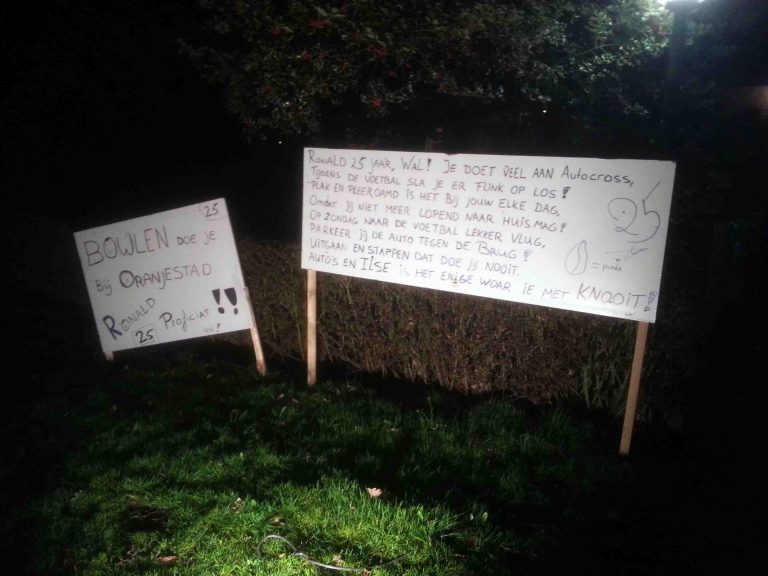 '25
BOWLEN DOE JE
BIJ ORANJESTAD
RONALD
25 PROFICIAT !!
RONALD 25 JAAR, WAL! JE DOET VEEL AAN AUTOCROSS,
TIJDENS DE VOETBAL SLA JE ER FLINK OP LOS!
PLAK EN PLEEROAMD IS HET BIJ JOUW ELKE DAG,
OMDAT JIJ NIET MEER LOPEND NAAR HUIS MAG!
OP ZONDAG NAAR DE VOETBAL LEKKER VLUG,
PARKEER JIJ DE AUTO TEGEN DE BRUG!
UITGAAN EN STAPPEN DAT DOE JIJ NOOIT.
AUTO'S EN ILSE IS HET ENIGE WOAR IE MET KNOOIT!
25
= pinda